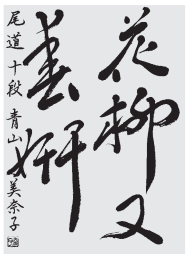 花柳又
春妍
尾道 十段 青山美奈子